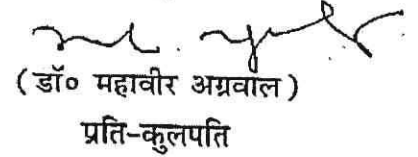 (डॉ० महावीर अग्रवाल)
प्रति-कुलपति